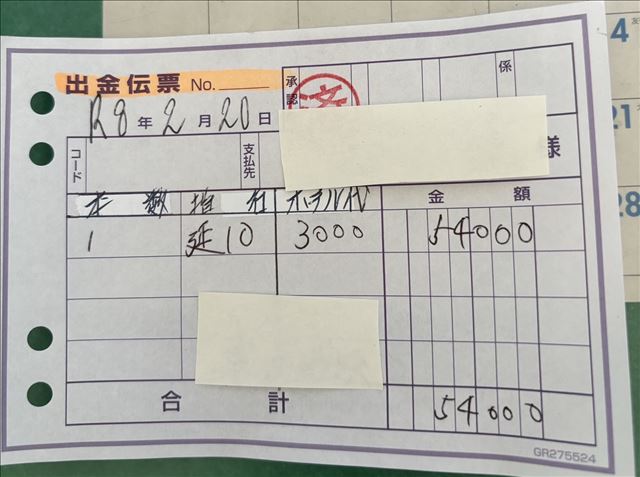 出金伝票 No.
承認 済 係
R8年2月20日
コード 支払先 様
本数 指名 ホテル代 金額
1 延10 3000 54000
合計 54000
GR275524
4 友
21
28